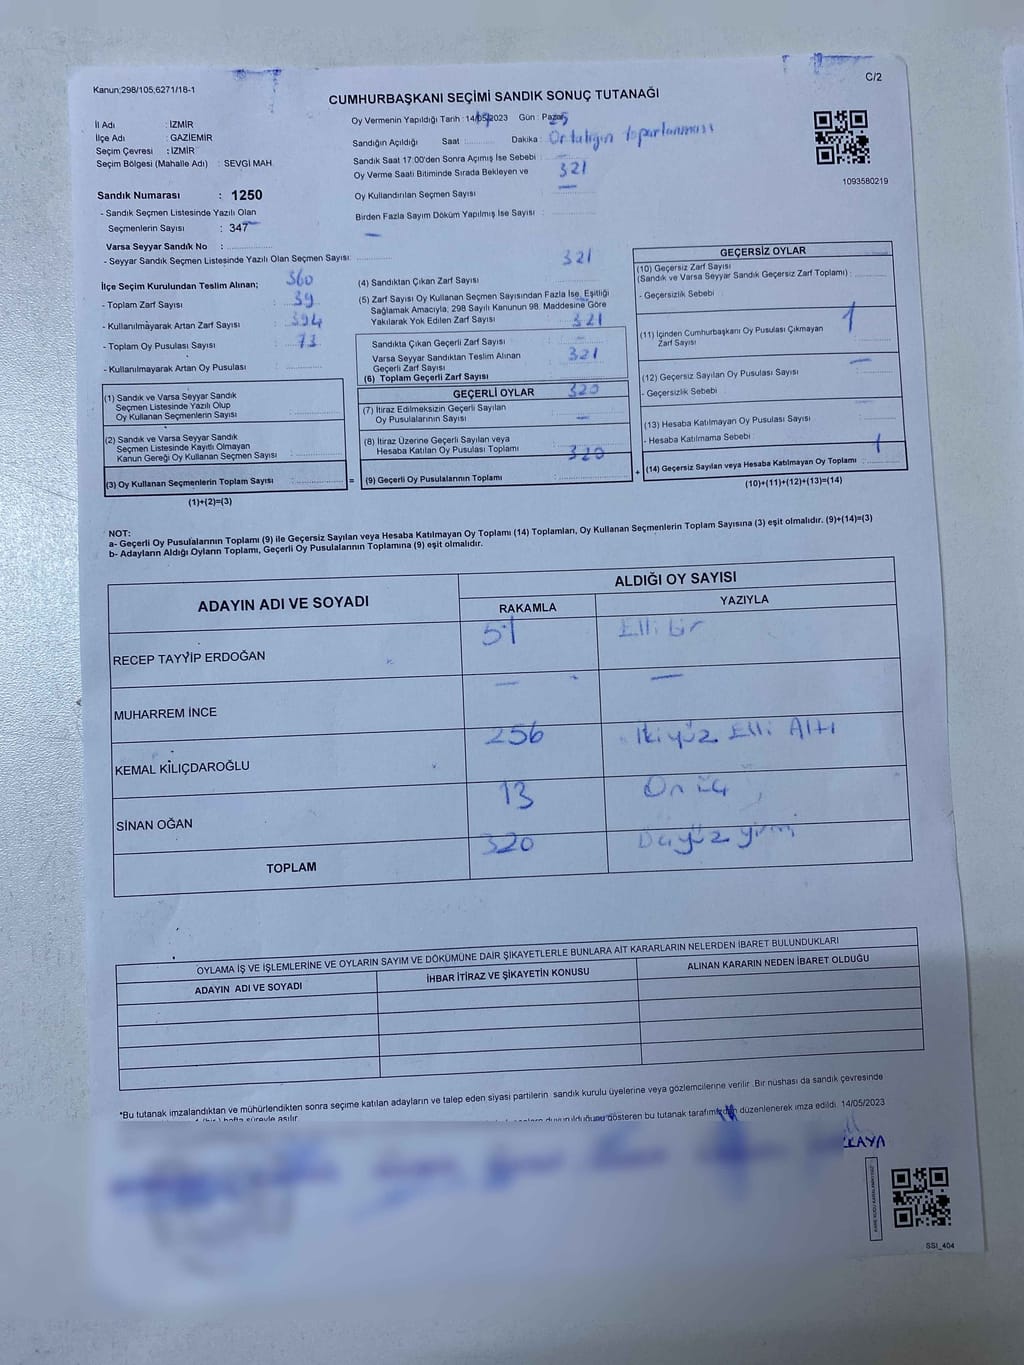 Kanun;298/105,6271/18-1
C/2
CUMHURBAŞKANI SEÇİMİ SANDIK SONUÇ TUTANAĞI
İl Adı : İZMİR
İlçe Adı : GAZİEMİR
Seçim Çevresi : İZMİR
Seçim Bölgesi (Mahalle Adı) : SEVGİ MAH.
Oy Vermenin Yapıldığı Tarih : 14/05/2023 Gün : Pazar
Sandığın Açıldığı Saat Dakika :
Ortalığın toparlanması
Sandık Saat 17:00'den Sonra Açımış İse Sebebi :
Oy Verme Saati Bitiminde Sırada Bekleyen ve 321
Oy Kullandırılan Seçmen Sayısı : —
Birden Fazla Sayım Döküm Yapılmış İse Sayısı :
1093580219
Sandık Numarası : 1250
- Sandık Seçmen Listesinde Yazılı Olan
Seçmenlerin Sayısı : 347
Varsa Seyyar Sandık No :
- Seyyar Sandık Seçmen Listesinde Yazılı Olan Seçmen Sayısı: —
İlçe Seçim Kurulundan Teslim Alınan; 360
- Toplam Zarf Sayısı : 39
- Kullanılmayarak Artan Zarf Sayısı : 394
- Toplam Oy Pusulası Sayısı : 73
- Kullanılmayarak Artan Oy Pusulası
(1) Sandık ve Varsa Seyyar Sandık
Seçmen Listesinde Yazılı Olup
Oy Kullanan Seçmenlerin Sayısı
(2) Sandık ve Varsa Seyyar Sandık
Seçmen Listesinde Kayıtlı Olmayan
Kanun Gereği Oy Kullanan Seçmen Sayısı
(3) Oy Kullanan Seçmenlerin Toplam Sayısı =
(1)+(2)=(3)
321
(4) Sandıktan Çıkan Zarf Sayısı
(5) Zarf Sayısı Oy Kullanan Seçmen Sayısından Fazla İse, Eşitliği
Sağlamak Amacıyla, 298 Sayılı Kanunun 98. Maddesine Göre
Yakılarak Yok Edilen Zarf Sayısı 321
Sandıkta Çıkan Geçerli Zarf Sayısı —
Varsa Seyyar Sandıktan Teslim Alınan 321
Geçerli Zarf Sayısı
(6) Toplam Geçerli Zarf Sayısı
GEÇERLİ OYLAR 320
(7) İtiraz Edilmeksizin Geçerli Sayılan
Oy Pusulalarının Sayısı —
(8) İtiraz Üzerine Geçerli Sayılan veya
Hesaba Katılan Oy Pusulası Toplamı 320
(9) Geçerli Oy Pusulalarının Toplamı +
GEÇERSİZ OYLAR
(10) Geçersiz Zarf Sayısı
(Sandık ve Varsa Seyyar Sandık Geçersiz Zarf Toplamı) :
- Geçersizlik Sebebi :
1
(11) İçinden Cumhurbaşkanı Oy Pusulası Çıkmayan
Zarf Sayısı
—
(12) Geçersiz Sayılan Oy Pusulası Sayısı
- Geçersizlik Sebebi :
(13) Hesaba Katılmayan Oy Pusulası Sayısı
- Hesaba Katılmama Sebebi : 1
(14) Geçersiz Sayılan veya Hesaba Katılmayan Oy Toplamı :
(10)+(11)+(12)+(13)=(14)
NOT:
a- Geçerli Oy Pusulalarının Toplamı (9) ile Geçersiz Sayılan veya Hesaba Katılmayan Oy Toplamı (14) Toplamları, Oy Kullanan Seçmenlerin Toplam Sayısına (3) eşit olmalıdır. (9)+(14)=(3)
b- Adayların Aldığı Oyların Toplamı, Geçerli Oy Pusulalarının Toplamına (9) eşit olmalıdır.
ADAYIN ADI VE SOYADI
ALDIĞI OY SAYISI
RAKAMLA YAZIYLA
RECEP TAYYİP ERDOĞAN 51 Elli bir
MUHARREM İNCE — —
KEMAL KILIÇDAROĞLU 256 İkiyüz Elli Altı
SİNAN OĞAN 13 On üç
TOPLAM 320 Üçyüz yirmi
OYLAMA İŞ VE İŞLEMLERİNE VE OYLARIN SAYIM VE DÖKÜMÜNE DAİR ŞİKAYETLERLE BUNLARA AİT KARARLARIN NELERDEN İBARET BULUNDUKLARI
ADAYIN ADI VE SOYADI İHBAR İTİRAZ VE ŞİKAYETİN KONUSU ALINAN KARARIN NEDEN İBARET OLDUĞU
*Bu tutanak imzalandıktan ve mühürlendikten sonra seçime katılan adayların ve talep eden siyasi partilerin sandık kurulu üyelerine veya gözlemcilerine verilir. Bir nüshası da sandık çevresinde
hafta süreyle asılır.
duyurulduğunu gösteren bu tutanak tarafımızdan düzenlenerek imza edildi. 14/05/2023
KAYA
SSI_404